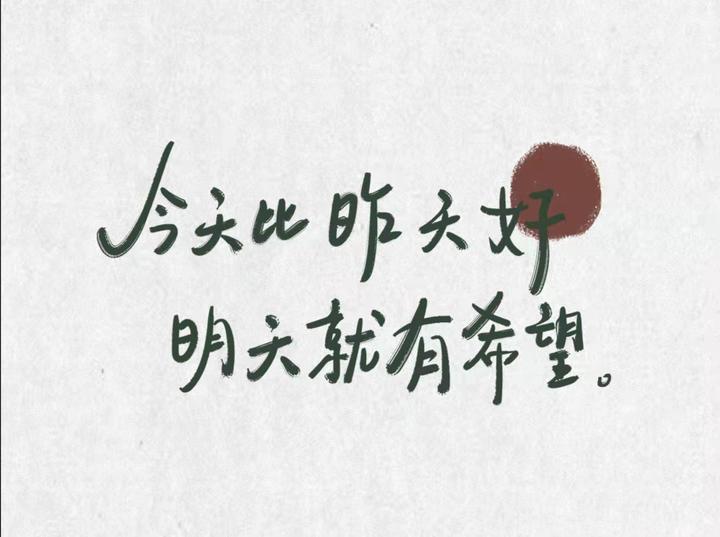 今天比昨天好
明天就有希望。